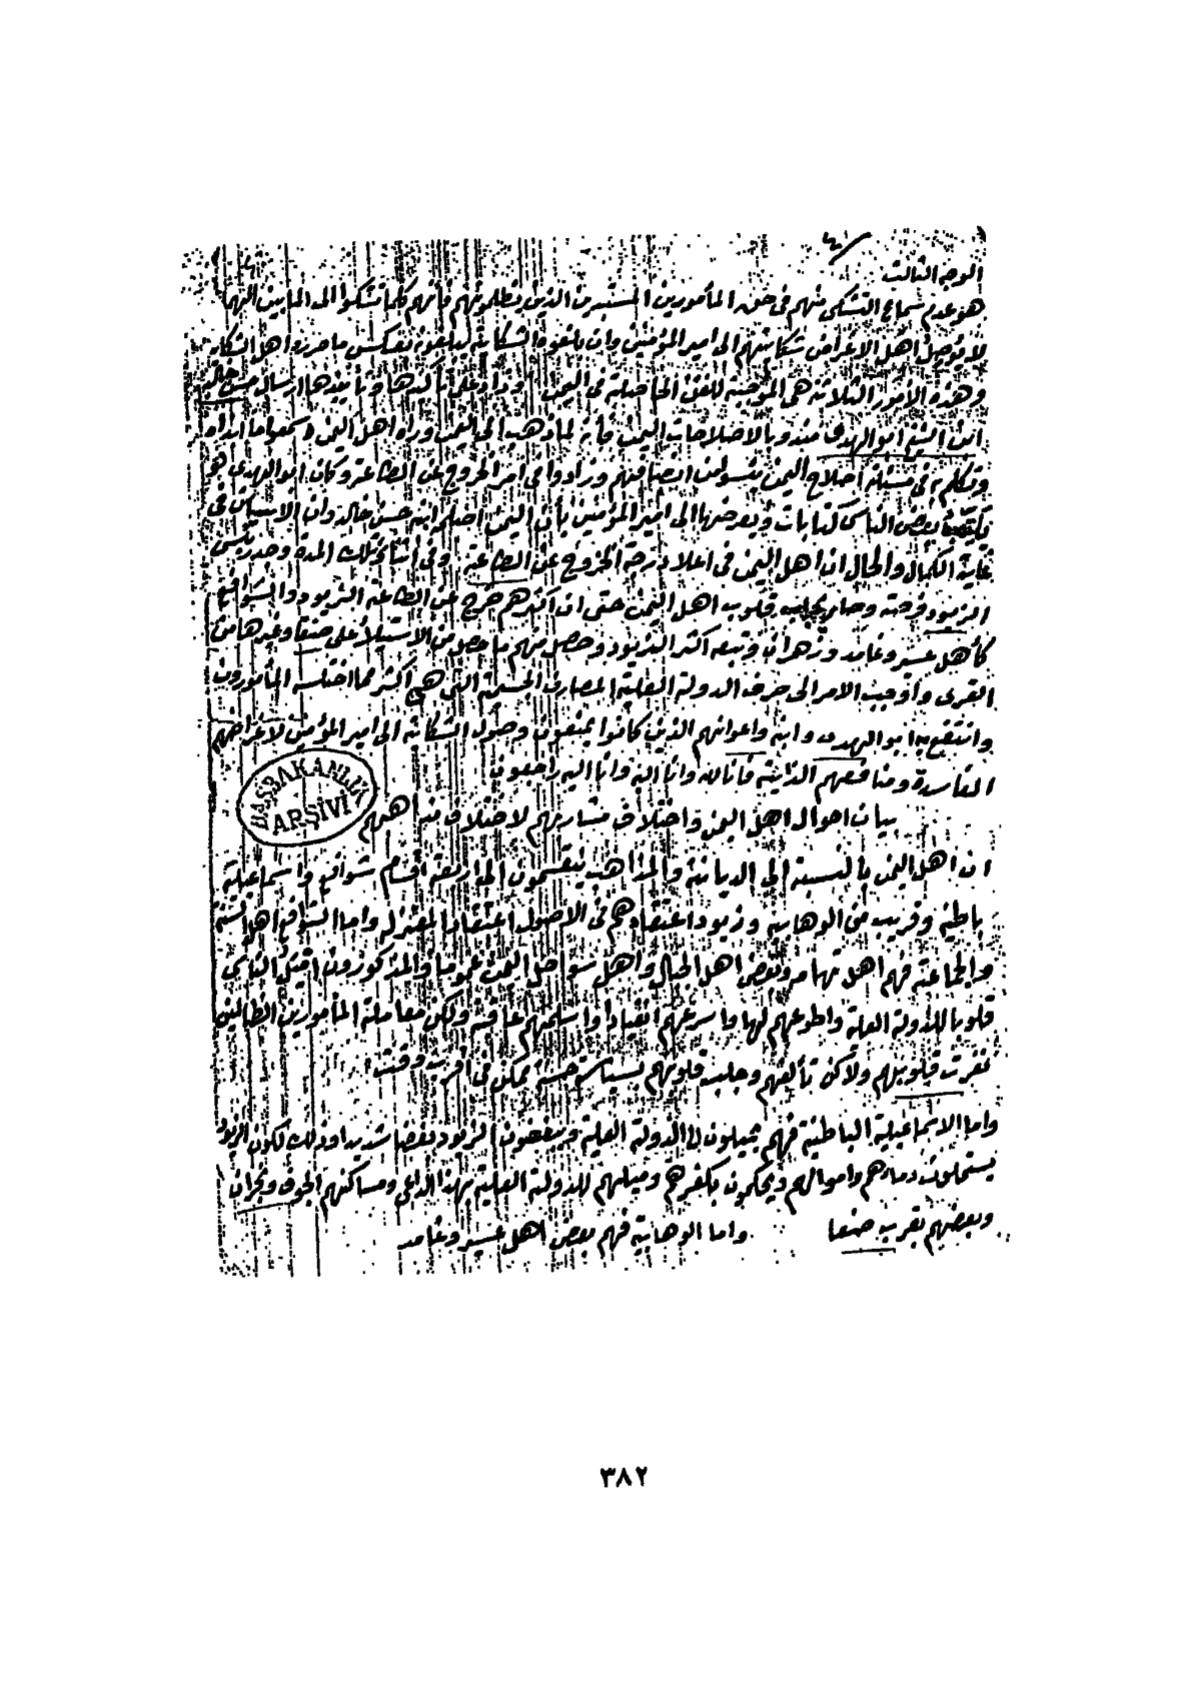 الوجه الثالث
هو عدم سماع التشكي منهم في حق المأمورين المستبدين الذين يظلمونهم فانهم كلما تشكوا الى المابين الهما
لا يوصل اهل الاغراض شكايتهم الى امير المؤمنين وان بلغوه الشكاية لبلغوه بعكس ما حرره اهل الشكاية
وهذه الامور الثلاثة هي الموجبة للفتن الحاصلة في اليمن وزاد على تأكيدها وتأييدها ارسال حسن خالد
ابن الشيخ ابو الهدى مندوبا لاصلاحات اليمن فانه لما ذهب الى اليمن ورآه اهل اليمن وسمعوا ما ابداه
وتكلم به في مسئلة اصلاح اليمن يئسوا من انصافهم وزادوا في امر الخروج عن الطاعة وكان ابو الهدى هو
بعض الناس كتابات ويعرضها الى امير المؤمنين بأن اليمن اصلحه ابنه حسن خالد وان الاسباب في
غاية الكمال والحال ان اهل اليمن في اعلا درجة الخروج عن الطاعة وفي اثناء تلك المدة وجد رئيس
الزيود فرصة وصار يجلب قلوب اهل اليمن حتى ان اكثرهم خرج عن الطاعة الزيود والشوافع
كأهل عسير وغامد وزهران وتبعه اكثر الزيود وحصل منهم ما حصل من الاستيلاء على صنعا وغيرها من
القرى وأوجب الامر الى صرف الدولة العلية المصارف الجسيمة التي هي اكثر مما اختلسه المأمورون
وانتفع به ابو الهدى وابنه واعوانهم الذين كانوا يمنعون وصول الشكاية الى امير المؤمنين لاغراضهم
الفاسدة ومنافعهم الذاتية فانا لله وانا اليه وانا اليه راجعون
بيان احوال اهل اليمن واختلاف مشاربهم لاختلاف مذاهبهم
BAŞBAKANLIK
ARŞİVİ
ان اهل اليمن بالنسبة الى الديانة والمذاهب ينقسمون الى اربعة اقسام شوافع واسماعيلية
باطنية وقريب من الوهابية وزيود اعتقادهم في الاصول اعتقاد المعتزلة واما الشوافع اهل السنة
والجماعة فهم اهل تهامه وبعض اهل الجبال واهل سواحل اليمن عموما والمذكورون اميل الناس
قلوبا للدولة العلية واطوعهم لها واسرعهم انقيادا واسلمهم عاقبة ولكن معاملة المأمورين الظالمين
نفرت قلوبهم ولاكن تأليفهم وجلب قلوبهم بسياسة حسنة ممكن في اقرب وقت
واما الاسماعيلية الباطنية فهم يميلون الى الدولة العلية ويبغضون الزيود بغضا شديدا وذلك لكون الزيود
يستحلون دماءهم واموالهم ويحكمون بكفرهم وميلهم للدولة العلية بهذا الداعي ومساكنهم الجوف ونجران
وبعضهم بقرب صنعا واما الوهابية فهم بعض اهل عسير وغامد
٣٨٢